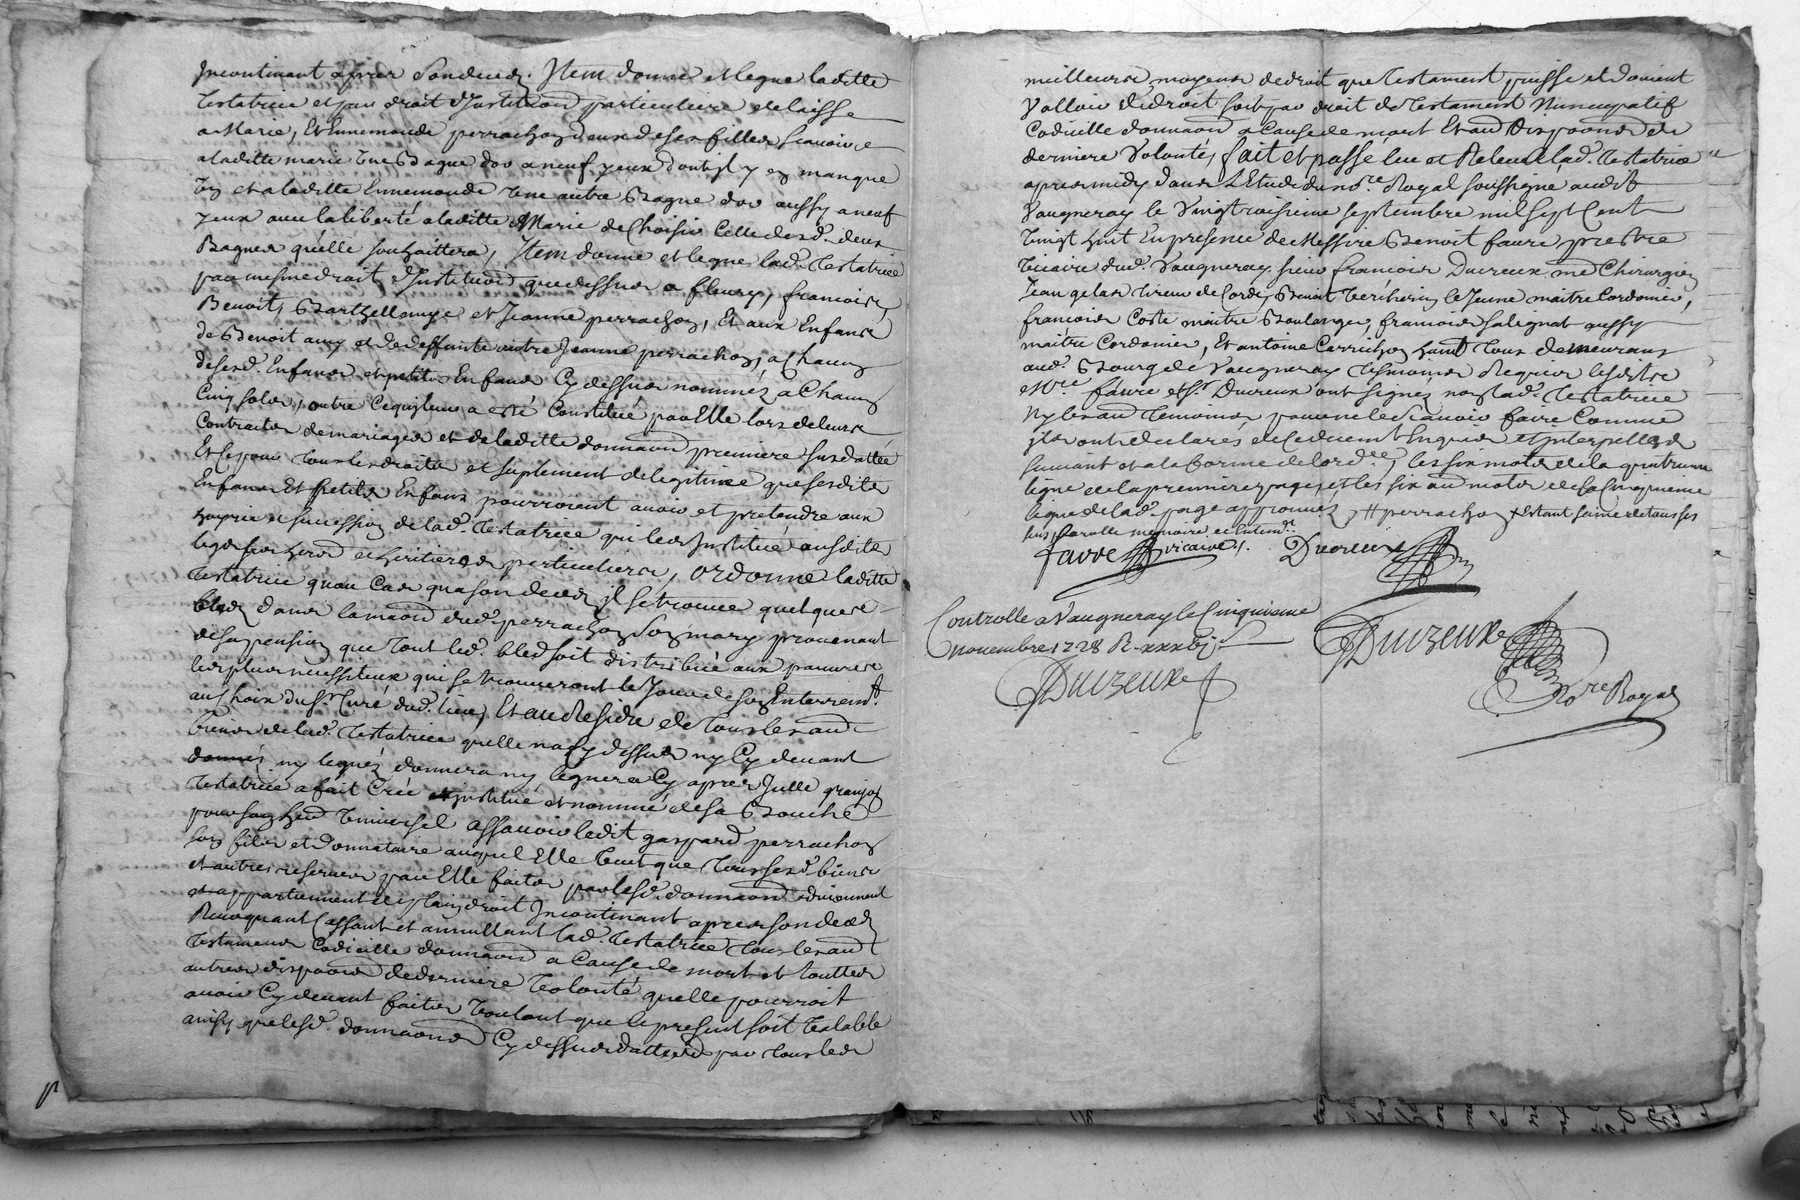 Incontinant apres son deced. Item donne et legue laditte
testatrice et par droit d'Institu͠on particuliere delaisse
a Marie, Et Ennemonde perrachon deux de ses filles scauoir
a laditte marie une Bague d'or a neuf yeux dont il y en manque
un et a laditte Ennemonde une autre Bague d'or aussy a neuf
yeux auec la liberté a laditte Marie de Choisir Celle desd. deux
Bagues qu'elle souhaittera, Item donne et legue lad. testatrice
par mesme droit d'Institu͠on que dessus a fleury, francoise,
Benoist, Barthellemye et Jeanne perrachon, Et aux Enfans
de Benoit et de deffunte autre Jeanne perrachon, a Chacun
desesd. Enfans et petits Enfans Cy dessus nommés a Chacun
Cinq sols, outre Ce qui leur a esté Constitué par Elle lors de leurs
Contracts de mariages et de laditte dona͠on premiere susdattée
Et Ce pour tous les droits et suplement de legitime que sesdits
Enfans Et petits Enfans pourroient auoir et pretendre aux
hoyrie et succession de lad. testatrice qui les Institue ausdits
legs ses heritiers particuliers, ordonne laditte
testatrice qu'au Cas qu'a son deced il se trouue quelques
bleds dans la maison dud. perrachon son mary prouenant
de sa pension que tout led. bled soit distribué aux pauures
les plus necessiteux qui se trouueront le Jour de son Enterremt.
au Choix du sr. Curé dud. lieu, Et au Residu de tous les au͠
biens de lad. testatrice qu'elle n'a Cy dessus ny Cy deuant
donnés ny legués donnera ny leguera Cy apres Julle granjon
testatrice a fait Créé institué et nommé de sa Bouche
pour son herit͠ uniuersel assauoir ledit gaspard perrachon
son fils et donnataire auquel Elle Veut que tous sesd. biens
et autres reserues par Elle faites par lesd. donna͠on
appartiennent de plain droit Incontinant apres son deced
Reuoquant Cassant et annullant lad. testatrice tous les au͠
testamens Codicille donna͠on a Cause de mort et touttes
autres disposi͠on de derniere Volonté qu'elle pourroit
auoir Cy deuant faites Voulant que le present soit Valable
ainsy que lesd. donna͠ons Cy dessus dattées par tous les
meilleurs moyens de droit que testament puisse et doiuent
Valloir de droit soit par droit de testament Nuncupatif
Codicille donna͠on a Cause de mort Et au͠ Disposi͠ons de
derniere Volonté, fait et passé leu et Releu a lad. testatrice
apres midy dans L'Etude du no.re Royal soussigné audit
Vaugneray le Vingt troisieme septembre mil sept Cent
Vingt huit En presence de Messire Benoit faure prestre
Vicaire dud. Vaugneray. sieur francois Dureux me Chirurgien
Jean gelas tireur de Corde, Benoit Vercherin le Jeune maitre Cordonier,
francois Coste maitre Boulanger, francois salignat aussy
maitre Cordonier, Et antoine Carrichon tous demeurans
aud. Bourg de Vaugneray tesmoins Requis lesdits
Mre. faure et sr. Dureux ont signés non lad. testatrice
Ny les au͠ temoins pour ne le scauoir faire Comme
ils ont declarés de Ce duement Enquis Et Interpellés
suiuant et a la forme de l'ord.ce, les six mots de la quatrieme
ligne de la premiere page, et les six au͠ mots de la Cinquieme
ligne de lad. page approuués, # perrachon + Estant saine de tous ses
sens parolle memoire, et Entendt.
favre vicaire. Dureux
Controllé a Vaugneray le Cinquieme
novembre 1728 R.
Duvzeux
Duvzeux
No.re Royal